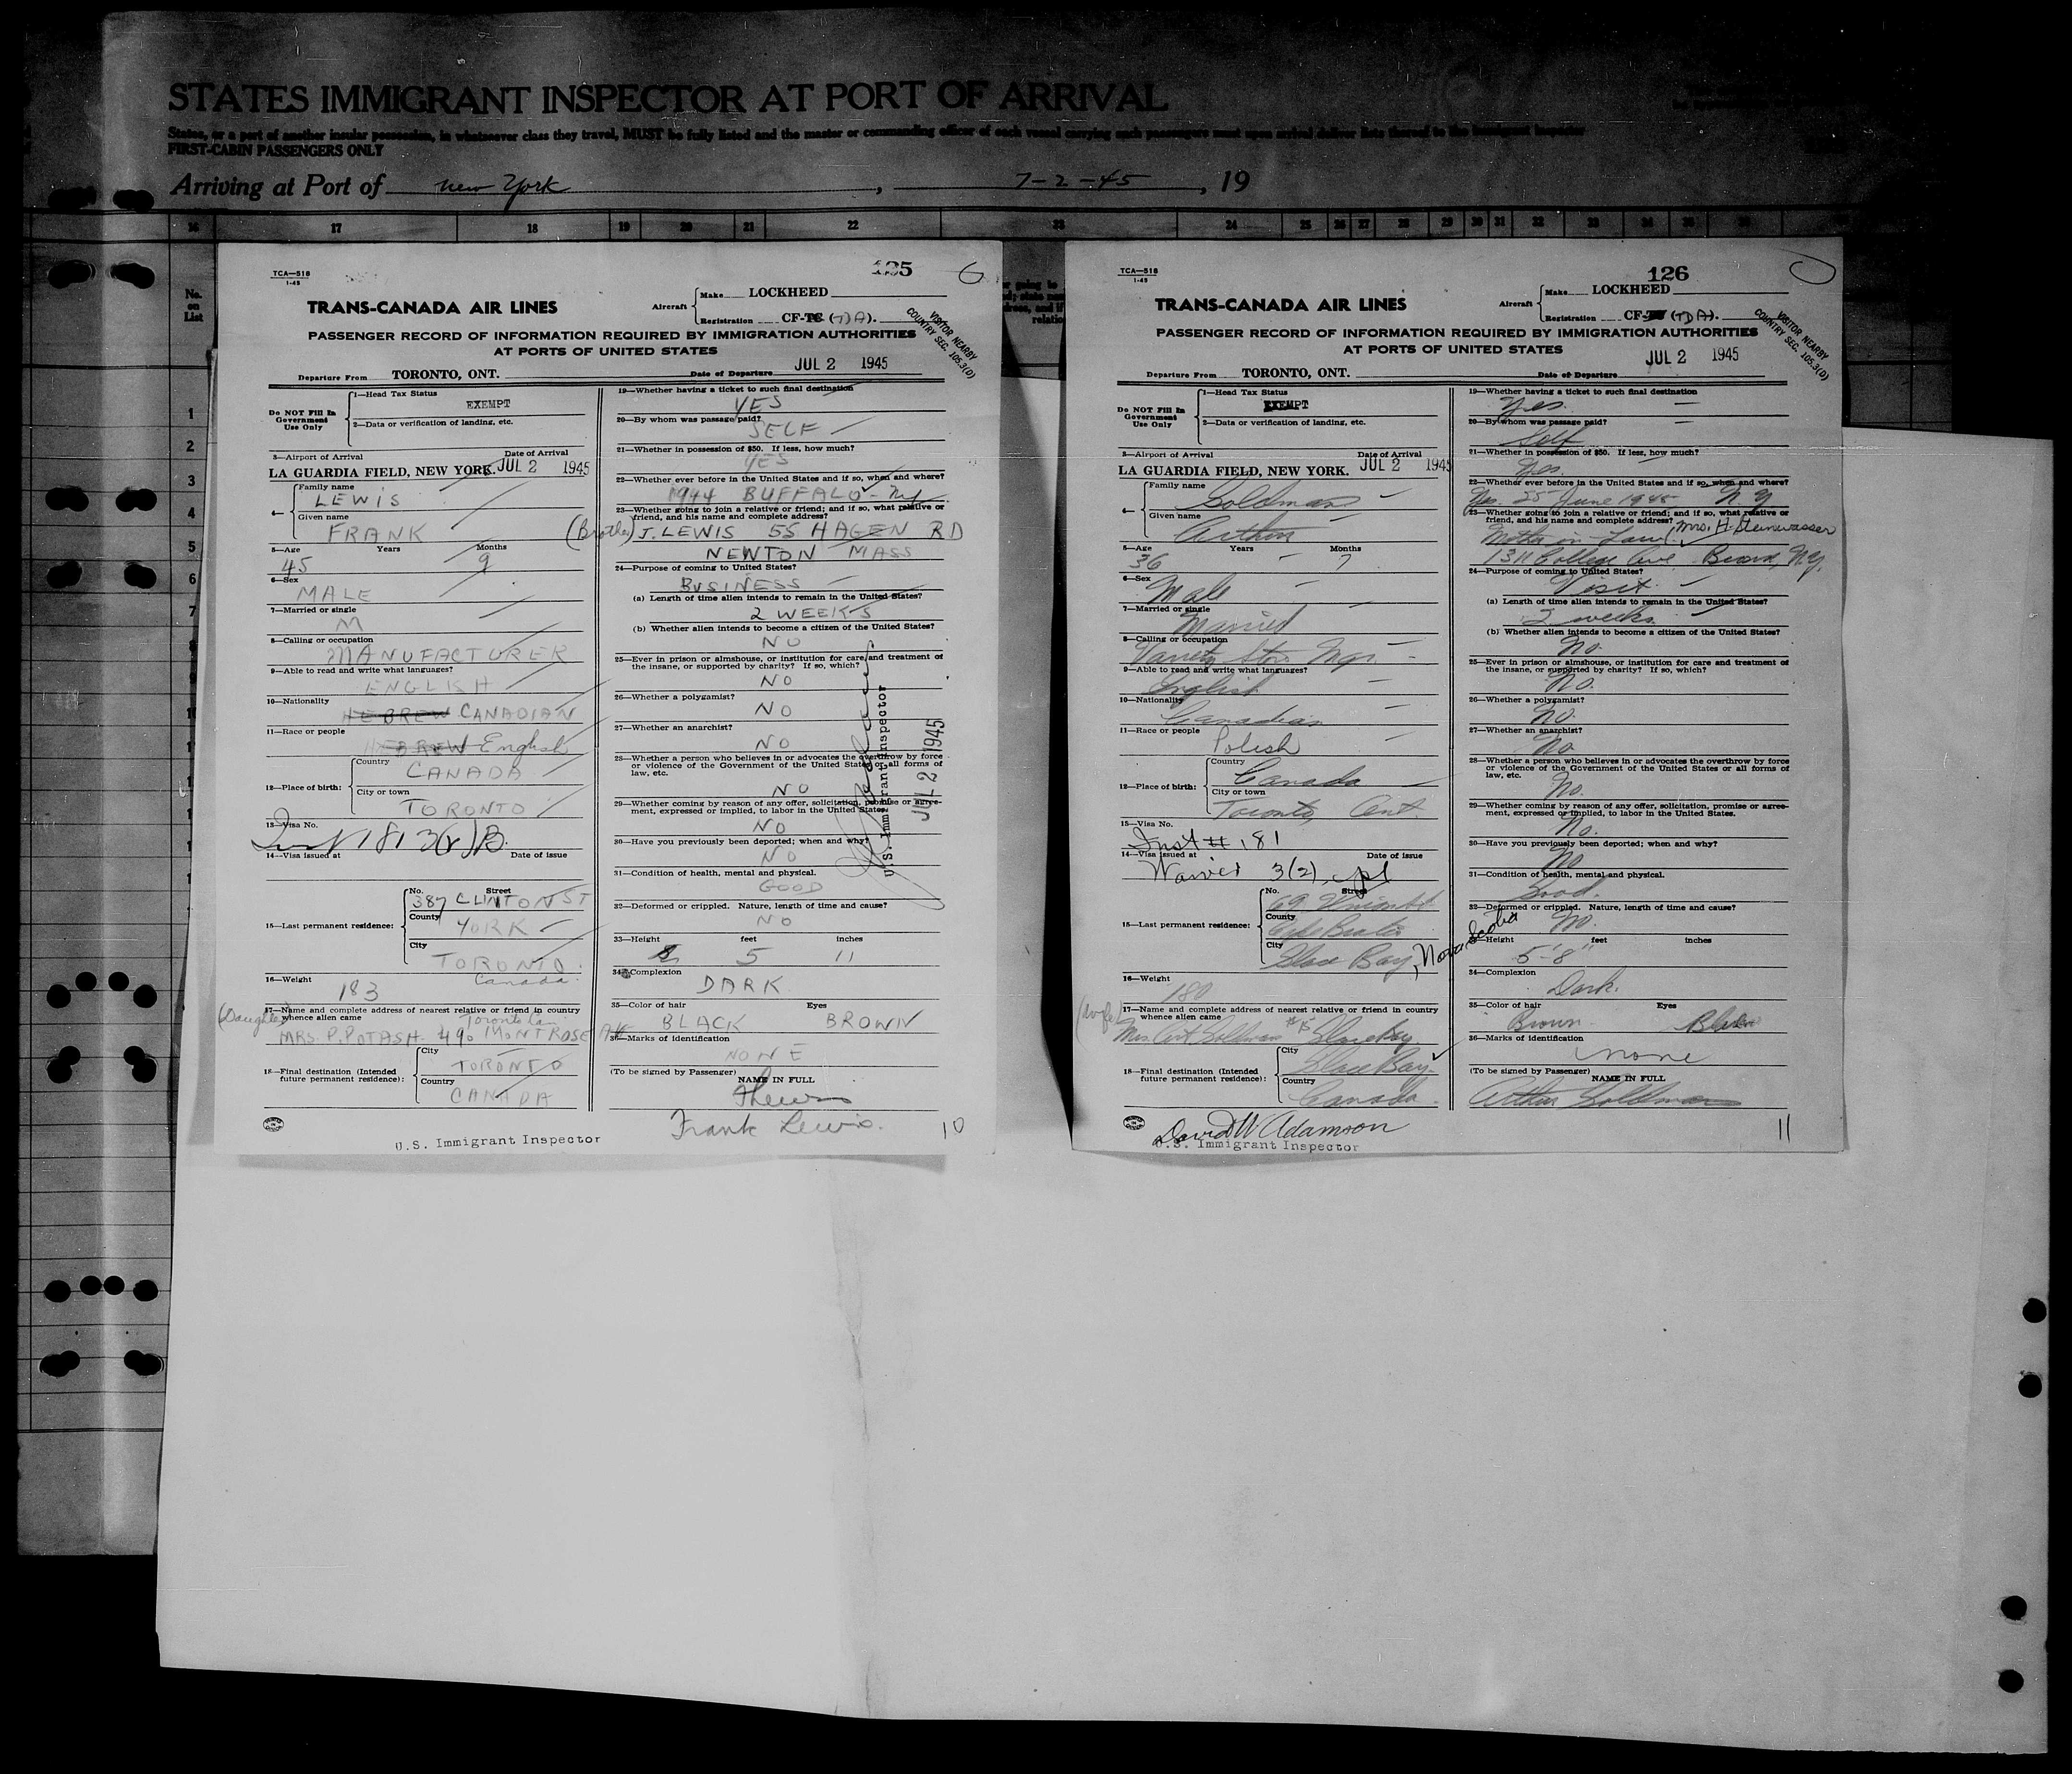 STATES IMMIGRANT INSPECTOR AT PORT OF ARRIVAL
States, or a part of another insular possession, in whatsoever class they travel, MUST be fully listed and the master or commanding officer of each vessel carrying such passengers must upon arrival deliver lists thereof to the immigrant inspector
FIRST-CABIN PASSENGERS ONLY
Arriving at Port of New York, 7-2-45, 19
16 17 18 19 20 21 22 23 24 25 26 27 28 29 30 31 32 33 34 35 36
No. on List
1
2
3
4
5
6
7
8
9
TCA—518
1-45
125
TRANS-CANADA AIR LINES
Aircraft
Make LOCKHEED
Registration CF-TC (TDA).
VISITOR NEARBY
COUNTRY SEC. 105.3(D)
PASSENGER RECORD OF INFORMATION REQUIRED BY IMMIGRATION AUTHORITIES
AT PORTS OF UNITED STATES
Departure From TORONTO, ONT. Date of Departure JUL 2 1945
Do NOT Fill In
Government
Use Only
1—Head Tax Status
EXEMPT
2—Data or verification of landing, etc.
3—Airport of Arrival Date of Arrival
LA GUARDIA FIELD, NEW YORK. JUL 2 1945
4—
Family name
LEWIS
Given name
FRANK
5—Age Years Months
45 9
6—Sex
MALE
7—Married or single
M
8—Calling or occupation
MANUFACTURER
9—Able to read and write what languages?
ENGLISH
10—Nationality
HEBREW CANADIAN
11—Race or people
HEBREW English
12—Place of birth:
Country
CANADA
City or town
TORONTO
13—Visa No.
14—Visa issued at Date of issue
15—Last permanent residence:
No. Street
387 CLINTON ST
County
YORK
City
TORONTO.
Canada.
16—Weight
183
17—Name and complete address of nearest relative or friend in country
whence alien came
(Daughter)
MRS. P. POTASH 490 MONTROSE AV
18—Final destination (Intended
future permanent residence):
City
TORONTO
Country
CANADA
U.S. Immigrant Inspector
19—Whether having a ticket to such final destination
YES
20—By whom was passage paid?
SELF
21—Whether in possession of $50. If less, how much?
YES
22—Whether ever before in the United States and if so, when and where?
1944 BUFFALO - NY
23—Whether going to join a relative or friend; and if so, what relative or
friend, and his name and complete address?
(Brother) J. LEWIS 55 HAGEN RD
NEWTON MASS
24—Purpose of coming to United States?
BUSINESS
(a) Length of time alien intends to remain in the United States?
2 WEEKS
(b) Whether alien intends to become a citizen of the United States?
NO
25—Ever in prison or almshouse, or institution for care and treatment of
the insane, or supported by charity? If so, which?
NO
26—Whether a polygamist?
NO
27—Whether an anarchist?
NO
28—Whether a person who believes in or advocates the overthrow by force
or violence of the Government of the United States or all forms of
law, etc.
NO
29—Whether coming by reason of any offer, solicitation, promise or agree-
ment, expressed or implied, to labor in the United States.
NO
30—Have you previously been deported; when and why?
NO
31—Condition of health, mental and physical.
GOOD
32—Deformed or crippled. Nature, length of time and cause?
NO
33—Height feet inches
5 11
34—Complexion
DARK
35—Color of hair Eyes
BLACK BROWN
36—Marks of identification
NONE
(To be signed by Passenger)
NAME IN FULL
Frank Lewis.
10
U.S. Immigrant Inspector
JUL 2 1945
TCA—518
1-45
126
TRANS-CANADA AIR LINES
Aircraft
Make LOCKHEED
Registration CF- (TDA).
VISITOR NEARBY
COUNTRY SEC. 105.3(D)
PASSENGER RECORD OF INFORMATION REQUIRED BY IMMIGRATION AUTHORITIES
AT PORTS OF UNITED STATES
Departure From TORONTO, ONT. Date of Departure JUL 2 1945
Do NOT Fill In
Government
Use Only
1—Head Tax Status
EXEMPT
2—Data or verification of landing, etc.
3—Airport of Arrival Date of Arrival
LA GUARDIA FIELD, NEW YORK. JUL 2 1945
4—
Family name
Goldman
Given name
Arthur
5—Age Years Months
36 7
6—Sex
Male
7—Married or single
Married
8—Calling or occupation
Variety Store Mgr
9—Able to read and write what languages?
English
10—Nationality
Canadian
11—Race or people
Polish
12—Place of birth:
Country
Canada
City or town
Toronto Ont.
13—Visa No.
Inst # 181
14—Visa issued at Date of issue
Waiver 3(2),
15—Last permanent residence:
No. Street
69
County
Cape Breton
City
Glace Bay, Nova Scotia
16—Weight
180
17—Name and complete address of nearest relative or friend in country
whence alien came
(wife)
Mrs. Art Goldman #15 Glace Bay.
18—Final destination (Intended
future permanent residence):
City
Glace Bay.
Country
Canada.
David W Adamson
U.S. Immigrant Inspector
19—Whether having a ticket to such final destination
Yes.
20—By whom was passage paid?
Self
21—Whether in possession of $50. If less, how much?
Yes.
22—Whether ever before in the United States and if so, when and where?
Yes. 25 June 1945 N.Y
23—Whether going to join a relative or friend; and if so, what relative or
friend, and his name and complete address?
Mother in Law (Mrs. H. Steinwasser
1311 College Ave. Bronx, N.Y.
24—Purpose of coming to United States?
Visit.
(a) Length of time alien intends to remain in the United States?
2 weeks.
(b) Whether alien intends to become a citizen of the United States?
No.
25—Ever in prison or almshouse, or institution for care and treatment of
the insane, or supported by charity? If so, which?
No.
26—Whether a polygamist?
No.
27—Whether an anarchist?
No
28—Whether a person who believes in or advocates the overthrow by force
or violence of the Government of the United States or all forms of
law, etc.
No.
29—Whether coming by reason of any offer, solicitation, promise or agree-
ment, expressed or implied, to labor in the United States.
No.
30—Have you previously been deported; when and why?
No
31—Condition of health, mental and physical.
Good.
32—Deformed or crippled. Nature, length of time and cause?
No.
33—Height feet inches
5-8"
34—Complexion
Dark.
35—Color of hair Eyes
Brown
36—Marks of identification
none
(To be signed by Passenger)
NAME IN FULL
Arthur Goldman
11